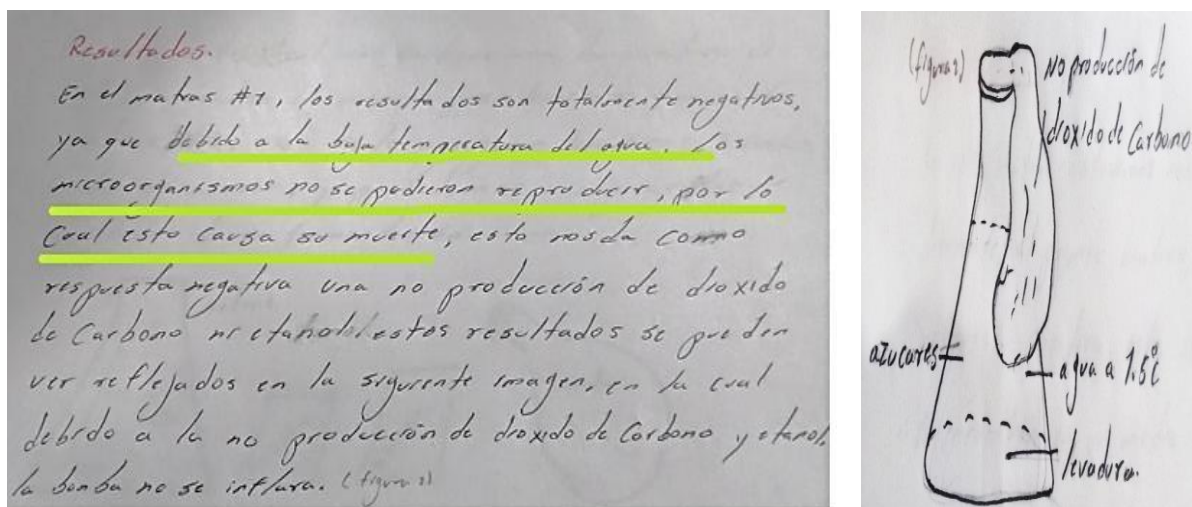 Resultados.
En el matras #1, los resultados son totalmente negativos,
ya que debido a la baja temperatura del agua, los
microorganismos no se pudieron reproducir, por lo
cual esto causa su muerte, esto nos da como
respuesta negativa una no producción de dioxido
de Carbono ni etanol, estos resultados se pueden
ver reflejados en la siguiente imagen, en la cual
debido a la no producción de dioxido de Carbono y etanol,
la bomba no se inflara. (figura 2)
(figura 2)
No producción de
dioxido de Carbono
azucares
agua a 1.5°C
levadura.